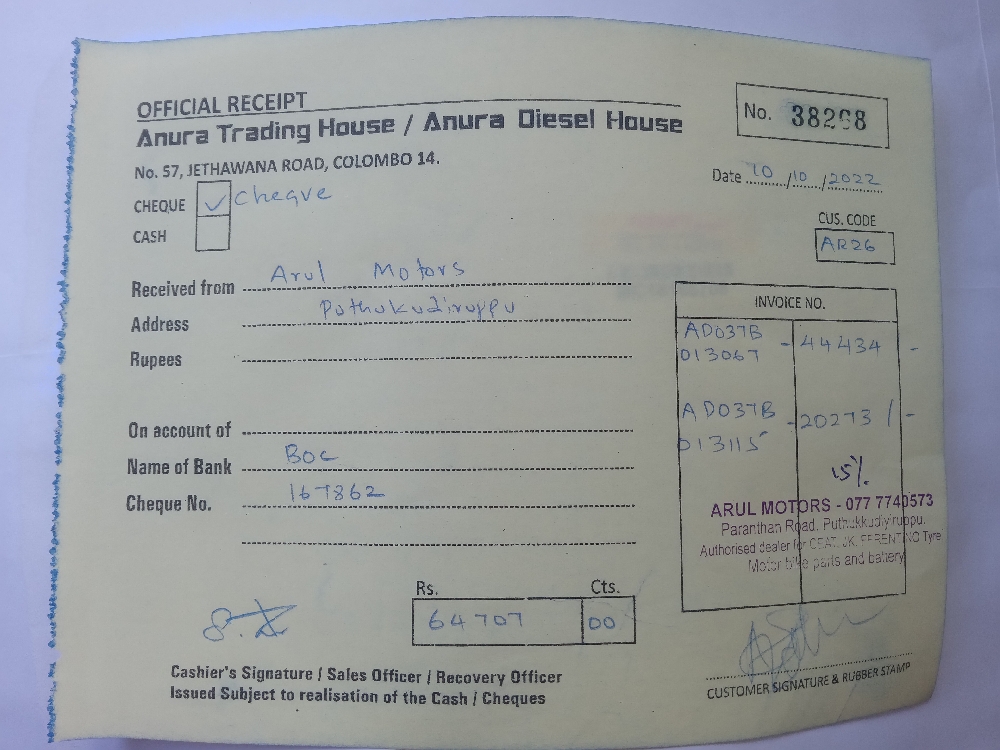 OFFICIAL RECEIPT
Anura Trading House / Anura Diesel House
No. 38268
No. 57, JETHAWANA ROAD, COLOMBO 14.
Date 10/10/2022
CHEQUE ✓ Cheque
CASH
CUS. CODE
AR26
Received from Arul Motors
Address Puthukudiruppu
Rupees
INVOICE NO.
AD037B
013067 - 44434 -
AD037B
013115 - 20273/-
15%
On account of
Name of Bank BOC
Cheque No. 167862
ARUL MOTORS - 077 7740573
Paranthan Road, Puthukkudiyiruppu.
Authorised dealer for CEAT, JK, Tyre
Motor bike parts and battery
Rs. Cts.
64707 00
Cashier's Signature / Sales Officer / Recovery Officer
Issued Subject to realisation of the Cash / Cheques
CUSTOMER SIGNATURE & RUBBER STAMP